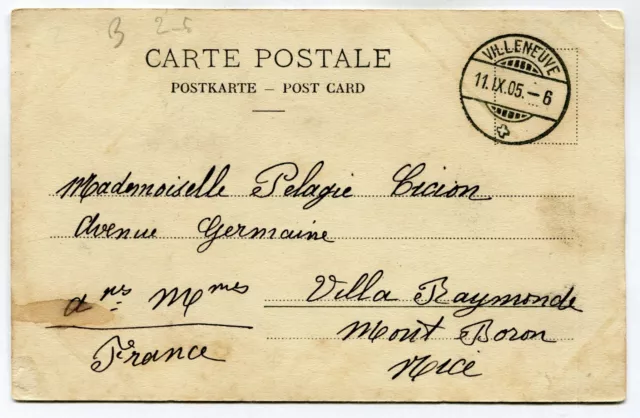 B 2-5
CARTE POSTALE
POSTKARTE – POST CARD
VILLENEUVE
11.IX.05.–6
Mademoiselle Pelagie Cicion
Avenue Germaine
Villa Raymonde
Mont Boron
Nice
a ns Mmes
France